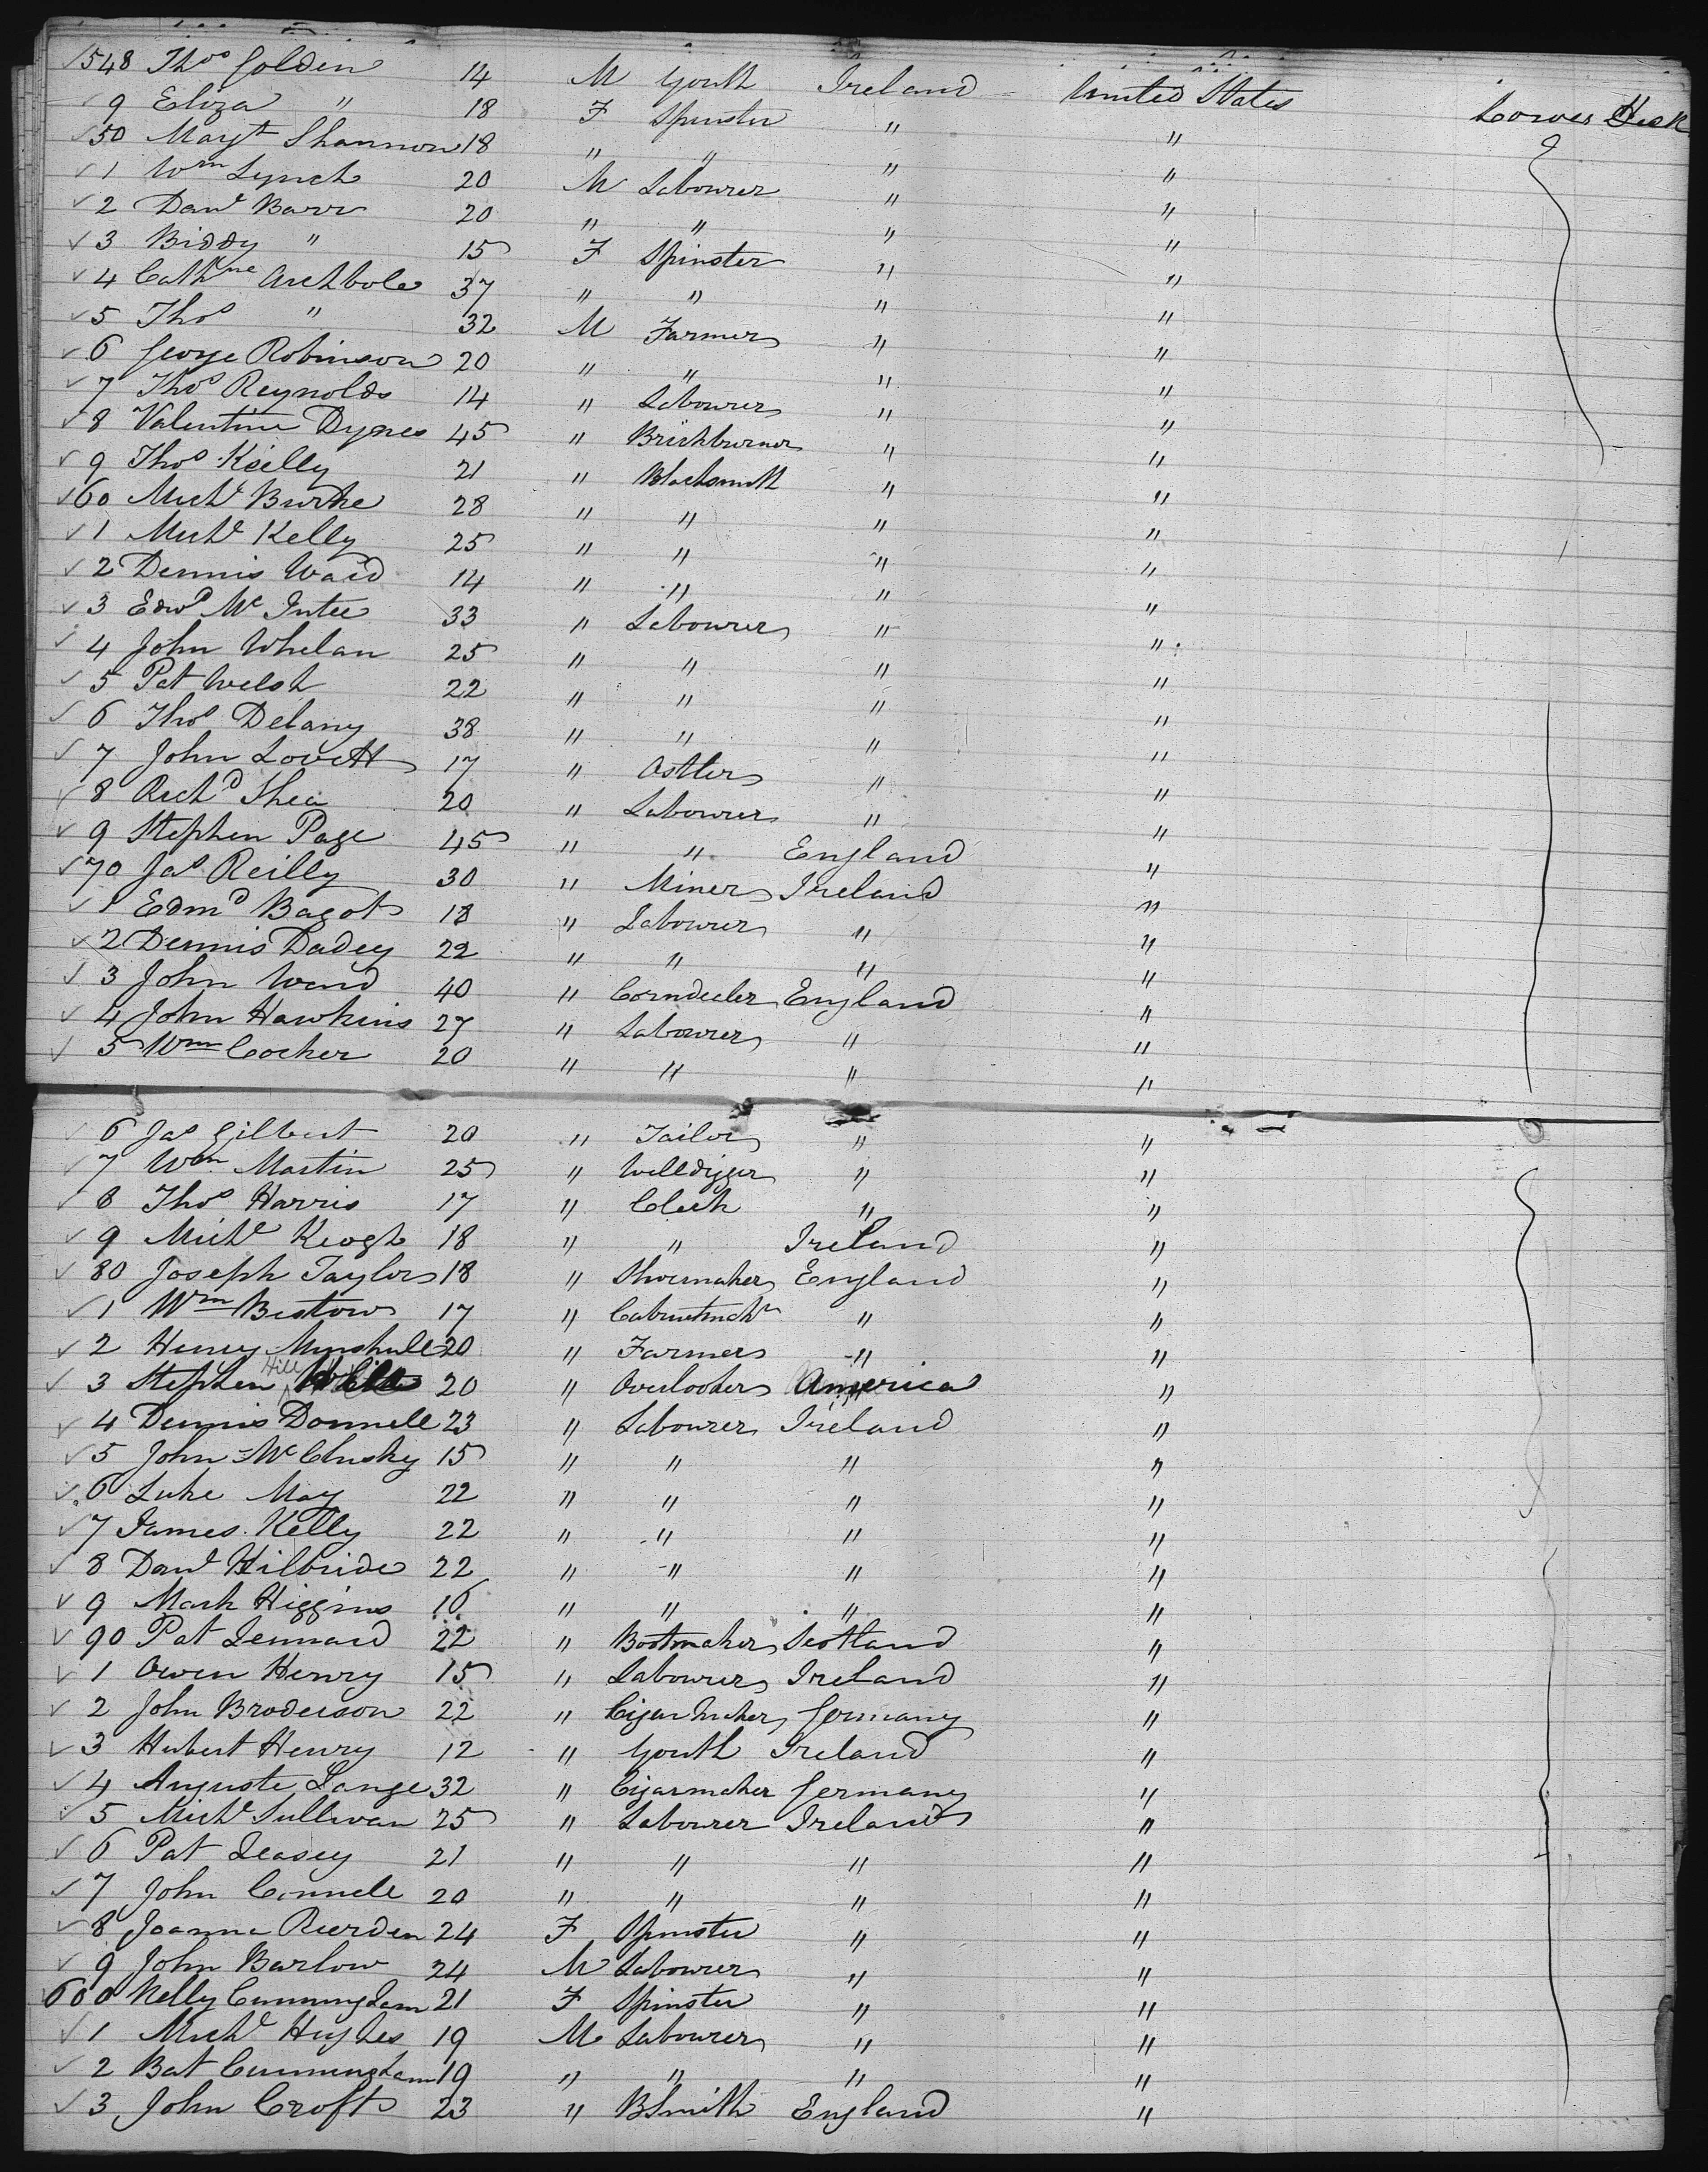 548 Thos Golden 14 M Youth Ireland United States Lower Deck
9 Eliza " 18 F Spinster " "
50 Margt Shannon 18 " " " "
1 Wm Lynch 20 M Labourer " "
2 Danl Barr 20 " " " "
3 Biddy " 15 F Spinster " "
4 Cathne Archbole 37 " " " "
5 Thos " 32 M Farmer " "
6 George Robinson 20 " " " "
7 Thos Reynolds 14 " Labourer " "
8 Valentine Dynes 45 " Brickburner " "
9 Thos Kielly 21 " Blacksmith " "
60 Michl Burke 28 " " " "
1 Michl Kelly 25 " " " "
2 Dennis Ward 14 " " " "
3 Edwd Mc Intee 33 " Labourer " "
4 John Whelan 25 " " " "
5 Pat Welsh 22 " " " "
6 Thos Delany 38 " " " "
7 John Lovett 17 " Ostler " "
8 Richd Shea 20 " Labourer " "
9 Stephen Page 45 " " England "
70 Jas Reilly 30 " Miner Ireland "
1 Edmd Bagot 18 " Labourer " "
2 Dennis Dadey 22 " " " "
3 John Ward 40 " Corndealer England "
4 John Hawkins 27 " Labourer " "
5 Wm Cocker 20 " " " "
6 Jas Gilbert 20 " Tailor " "
7 Wm Martin 25 " Welldigger " "
8 Thos Harris 17 " Clerk " "
9 Michl Keogh 18 " " Ireland "
80 Joseph Taylor 18 " Shoemaker England "
1 Wm Bestow 17 " Cabinetmakr " "
2 Henry Mynshull 20 " Farmer " "
3 Stephen Hill 20 " Overlooker America "
4 Dennis Donnell 23 " Labourer Ireland "
5 John McClusky 15 " " " "
6 Luke May 22 " " " "
7 James Kelly 22 " " " "
8 Danl Kilbride 22 " " " "
9 Mark Higgins 16 " " " "
90 Pat Lennard 22 " Bootmaker Scotland "
1 Owen Henry 15 " Labourer Ireland "
2 John Broderson 22 " Cigar Maker Germany "
3 Hubert Henry 12 " Youth Ireland "
4 Auguste Lange 32 " Cigarmaker Germany "
5 Michl Sullivan 25 " Labourer Ireland "
6 Pat Leasey 21 " " " "
7 John Connell 20 " " " "
8 Joanna Rierden 24 F Spinster " "
9 John Barlow 24 M Labourer " "
600 Nelly Cunningham 21 F Spinster " "
1 Michl Hughes 19 M Labourer " "
2 Bat Cunningham 19 " " " "
3 John Croft 23 " BSmith England "